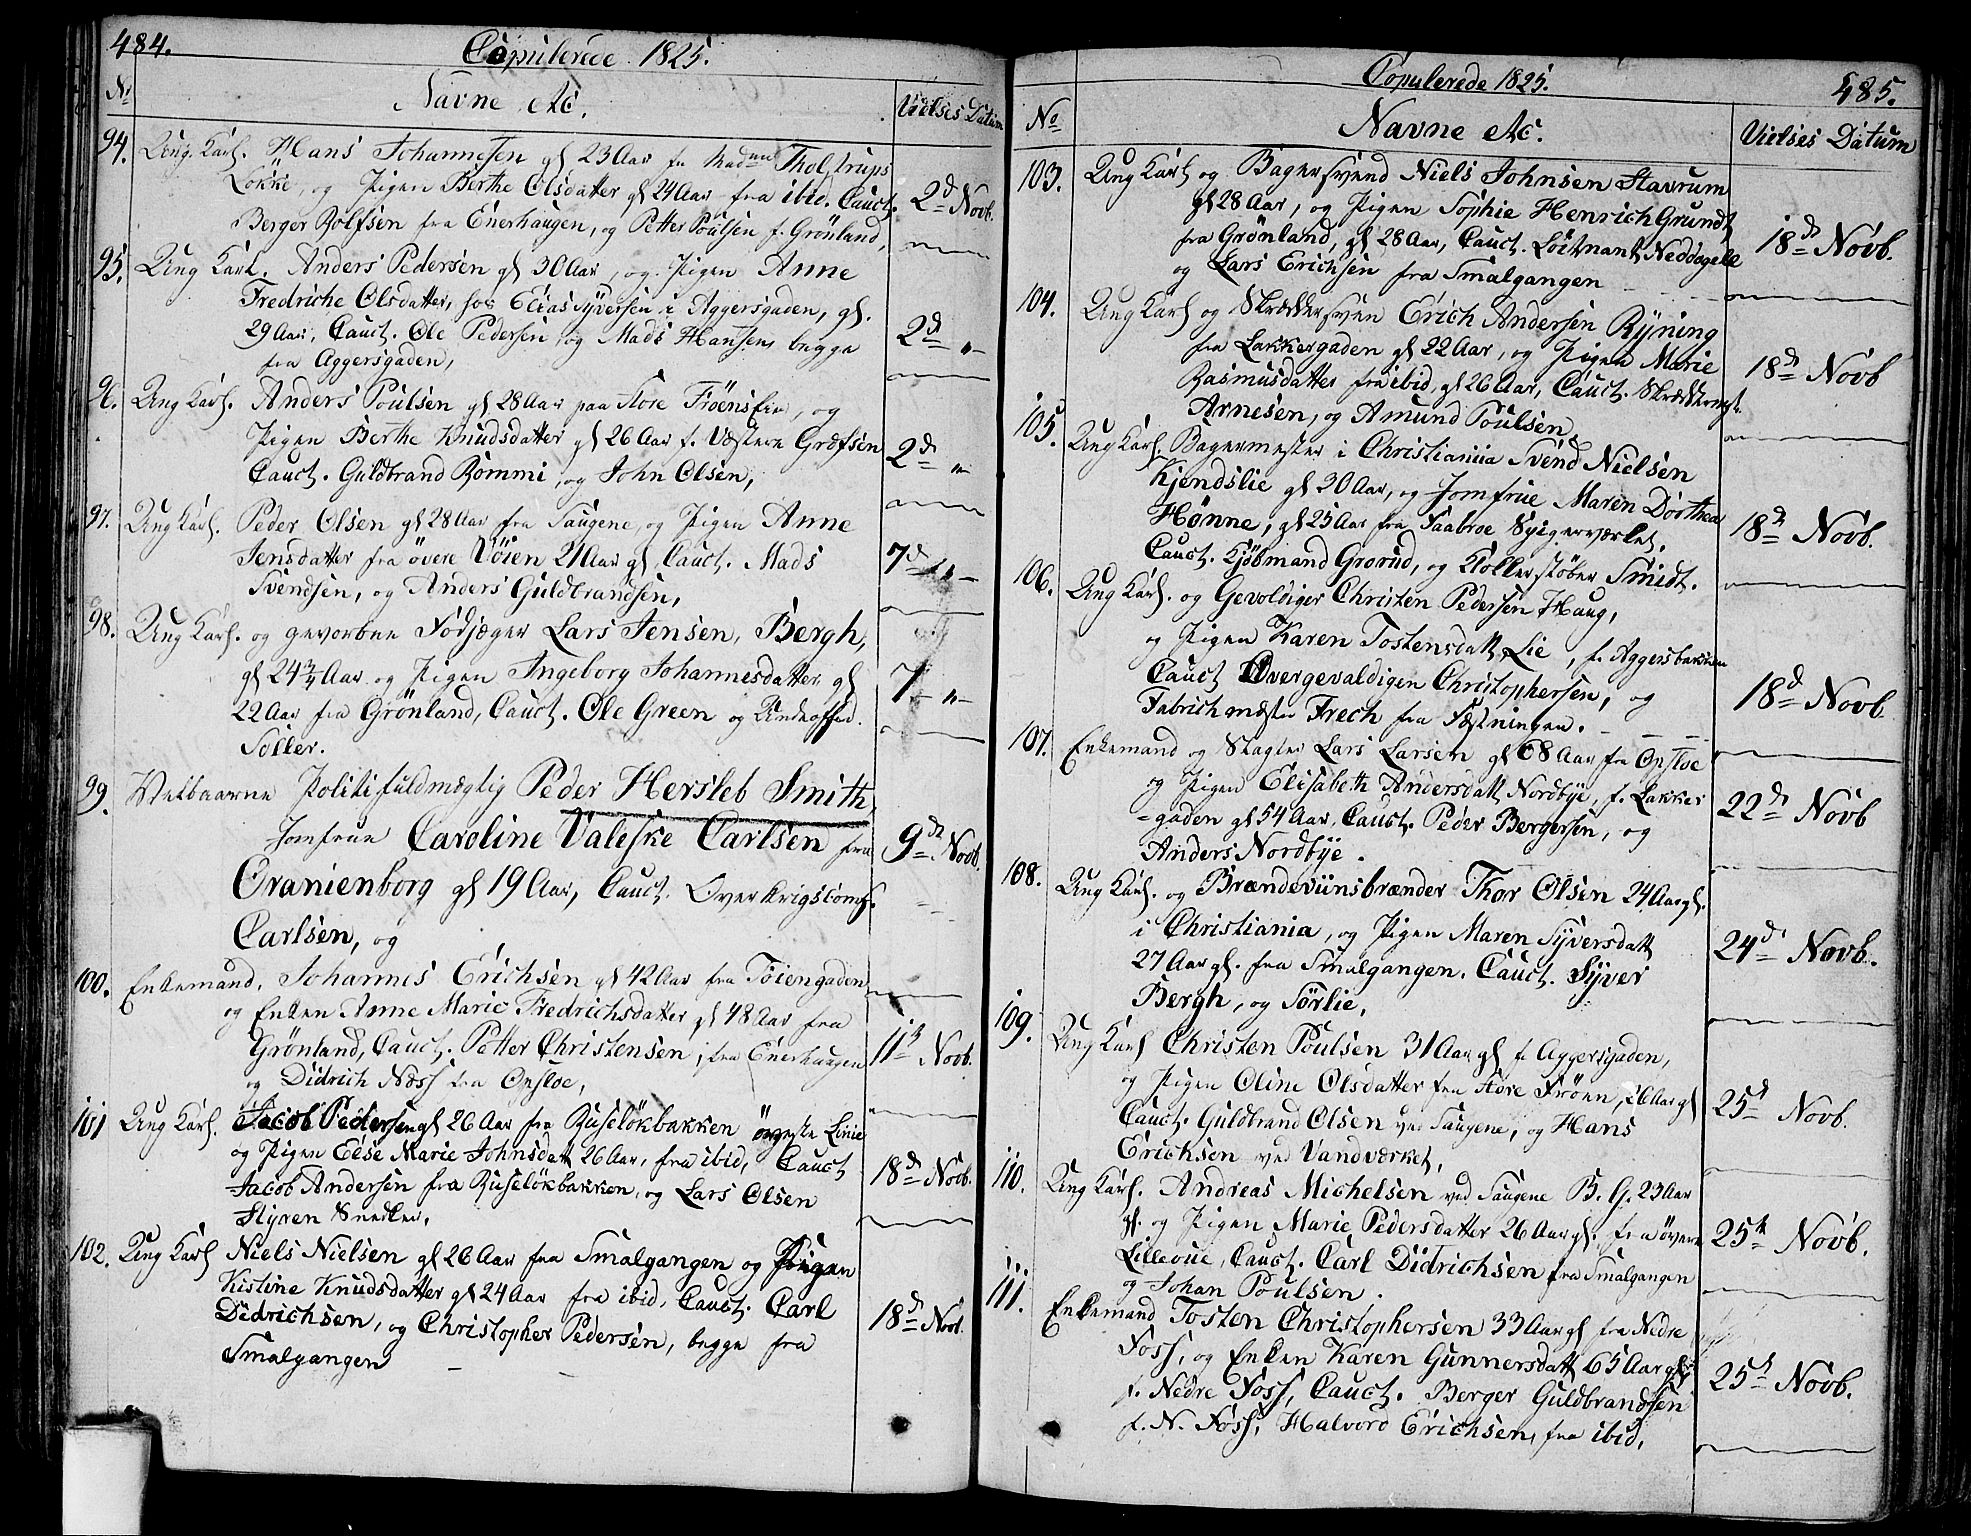 484.
Copulerede 1825.
No
Navne etc.
Vielses Datum
94. Ung. Karl. Hans Johannesen gl 23 Aar fra Madme Tholstrups
Løkke, og Pigen Berthe Olsdatter gl 24 Aar fra ibid. Cauct.
Berger Rolfsen fra Enerhaugen, og Petter Poulsen f. Grönland,
2d Novb.
95. Ung Karl. Anders Pedersen gl 30 Aar, og Pigen Anne
Fredriche Olsdatter, hos Elias Syversen i Aggersgaden, gl.
29 Aar, Cauct. Ole Pedersen og Mads Hansen, begge
fra Aggersgaden,
2d "
96. Ung Karl. Anders Poulsen gl 28 Aar paa Store Fröenseie, og
Pigen Berthe Knudsdatter gl 26 Aar f. Vestere Grefsen
Cauct. Guldbrand Rommi, og John Olsen,
2d "
97. Ung Karl. Peder Olsen gl 28 Aar fra Saugene, og Pigen Anne
Jensdatter fra övere Vöien 21 Aar gl Cauct. Mads
Svendsen, og Anders Guldbrandsen,
7d "
98. Ung Karl. og gevorben Fodjæger Lars Jensen, Bergh,
gl 24 3/4 Aar og Pigen Ingeborg Johannesdatter gl
22 Aar fra Grönland, Cauct. Ole Green og Underoffed.
Soller.
7 "
99. Velbaarne Politifuldmægtig Peder Hersleb Smith,
Jomfrue Caroline Valeske Carlsen fra
Oranienborg gl 19 Aar, Cauct. Overkrigscoms.
Carlsen, og
9de Novb.
100. Enkemand. Johannes Erichsen gl 42 Aar fra Töiengaden
og Enken Anne Marie Fredrichsdatter gl 48 Aar fra
Grönland, Cauct. Petter Christensen, fra Enerhaugen
og Didrich Næss fra Opsloe,
11te Novb.
101 Ung Karl. Jacob Pedersen gl 26 Aar fra Ruselökbakken överste Linie
og Pigen Else Marie Johnsdatt 26 Aar, fra ibid, Cauct
Jacob Andersen fra Ruselökbakken, og Lars Olsen
Styren Snedker,
18de Novb.
102. Ung Karl Niels Nielsen gl 26 Aar fra Smalgangen og Pigen
Kistine Knudsdatter gl 24 Aar fra ibid, Cauct. Carl
Didrichsen, og Christopher Pedersen, begge fra
Smalgangen
18de Novb.
Copulerede 1825.
485.
No
Navne etc.
Vielses Datum
103. Ung Karl og Bagersvend Niels Johnsen Stavrum
gl 28 Aar, og Pigen Sophie Henrich Grundt
fra Grönland, gl 28 Aar, Cauct. Loitnant Neddagelle
og Lars Erichsen fra Smalgangen
18de Novb.
104. Ung Karl og Skreddersven Erich Andersen Ryning
fra Lakkergaden gl 22 Aar, og Pigen Marie
Rasmusdatter fra ibid, gl 26 Aar, Cauct. Skreddermest.
Arnesen, og Amund Poulsen
18de Novb
105. Ung Karl. Bagermester i Christiania Svend Nielsen
Kjendslie gl 30 Aar, og Jomfrue Maren Dorthea
Hønne, gl 25 Aar fra Faabroe Spigerværket,
Cauct. Kjöbmand Grorud, og Klokkerstøber Smidt.
18de Novb.
106. Ung Karl. og Gevoldiger Christen Pedersen Haug,
og Pigen Karen Tostensdatt Lie, f. Aggersbakken
Cauct Overgevaldigen Christophersen, og
Fabrichmester Frech fra Fæstningen.
18d Novb.
107. Enkemand og Slagter Lars Larsen gl 68 Aar fra Opsloe
og Pigen Elisabeth Andersdatt Nordbye, f. Lakker
-gaden gl 54 Aar, Cauct. Peder Bergersen, og
Anders Nordbye.
22de Novb
108. Ung Karl. og Brændeviinsbrænder Thor Olsen 24 Aar gl.
i Christiania, og Pigen Maren Syversdatt
27 Aar gl. fra Smalgangen. Cauct. Syver
Bergh, og Sörlie,
24de Novb.
109. Ung Karl Christen Poulsen 31 Aar gl f. Aggersgaden,
og Pigen Oline Olsdatter fra Store Fröen, 26 Aar gl
Cauct. Guldbrand Olsen ved Saugene, og Hans
Erichsen ved Vandværket,
25d Novb.
110. Ung Karl. Andreas Michelsen ved Saugene B. G. 23 Aar
gl. og Pigen Marie Pedersdatter 26 Aar gl. fra övere
Lilleoue, Cauct. Carl Didrichsen fra Smalgangen
og Johan Poulsen.
25te Novb.
111. Enkemand Tosten Christophersen 33 Aar gl fra Nedre
Foss, og Enken Karen Gunnersdatt 65 Aar gl
f. Nedre Foss, Cauct. Berger Guldbrandsen
f. N. Foss, Halvord Erichsen, fra ibid,
25d Novb.